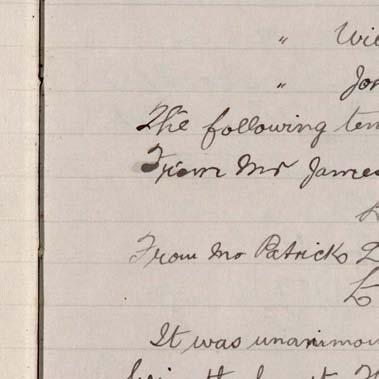 " Wil
" Jo
The following ten
From Mr James
From Mr Patrick
It was unanimou